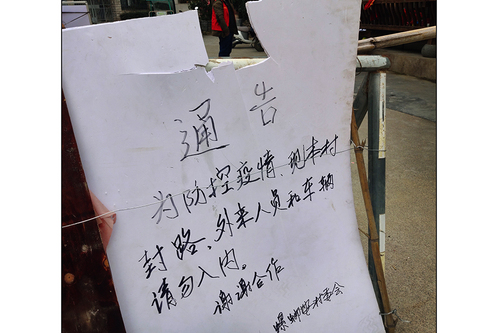 通告
为防控疫情,现本村
封路、外来人员和车辆
请勿入内。
谢谢合作
村委会